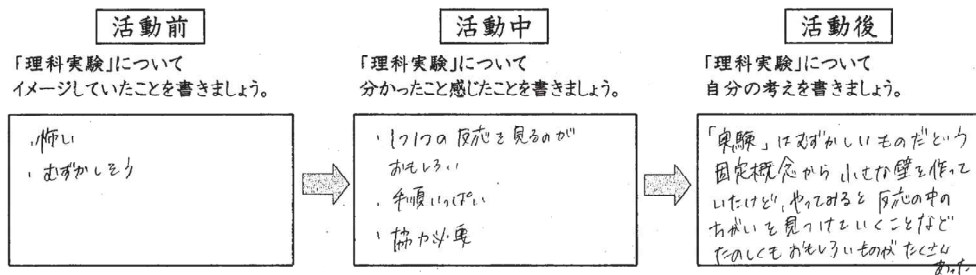 活動前
「理科実験」について
イメージしていたことを書きましょう。
・怖い
・むずかしそう
活動中
「理科実験」について
分かったこと感じたことを書きましょう。
・1つ1つの反応を見るのが
おもしろい
・手順いっぱい
・協力必要
活動後
「理科実験」について
自分の考えを書きましょう。
「実験」はむずかしいものだという
固定概念から小さな壁を作って
いたけど、やってみると反応の中の
ちがいを見つけていくことなど
たのしくもおもしろいものがたくさん
あった